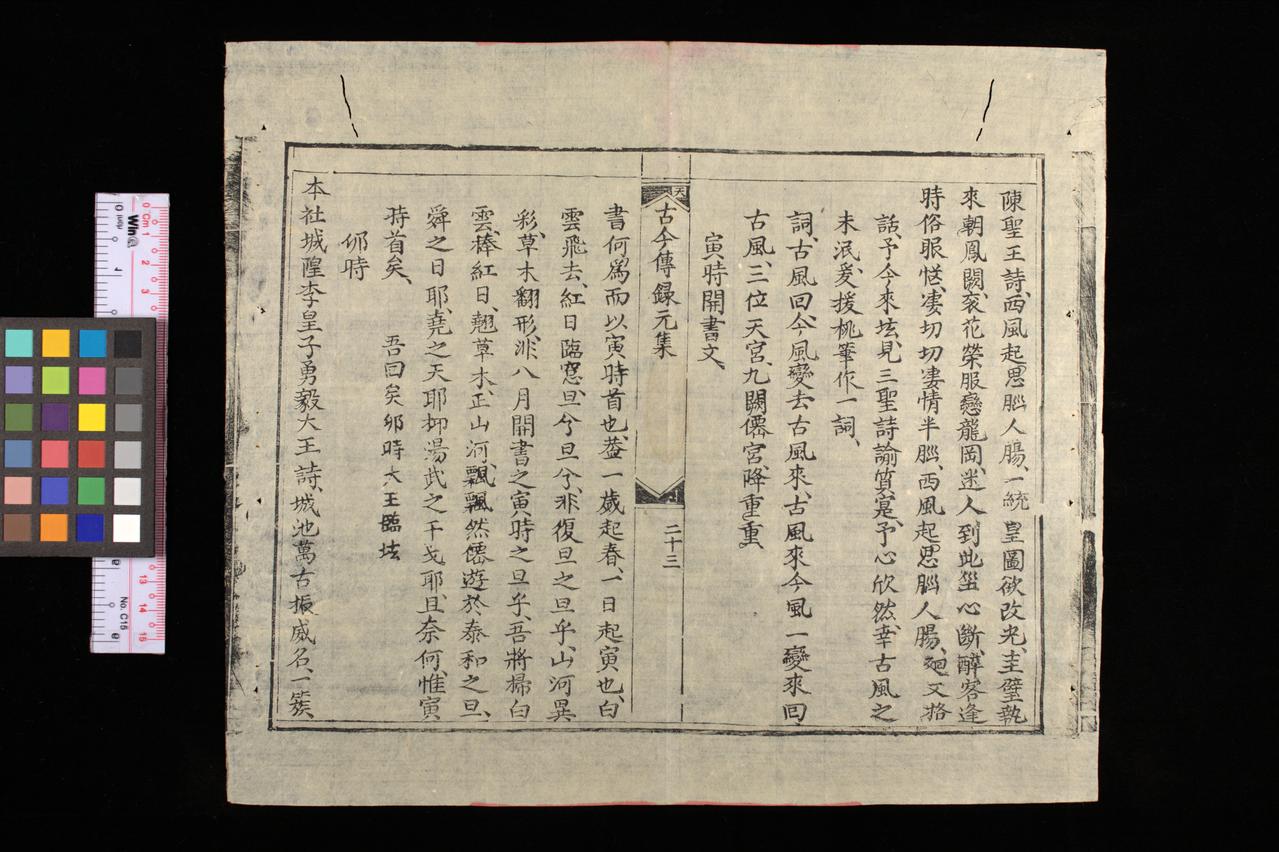 陳聖王詩、西風起思腦人腸、一統皇圖欲改光、圭璧執
來朝鳳闕、衮花榮服戀龍岡、迷人到此坐心斷、醉客逢
時俗眼㤥、凄切切凄情半腦、西風起思腦人腸、廻文格
話、予今來坛、見三聖詩諭質寔、予心欣然、幸古風之
未泯矣、援桃筆作一詞、
詞、古風回、今風變去古風來、古風來今風一變來回、
古風、三位天宮、九闕僊宮、降重重、
寅時開書文、
天
古今傳録元集
二十三
書何爲而以寅時首也、葢一歲起春、一日起寅也、白
雲飛去、紅日臨窓、旦兮旦兮、非復旦之旦乎、山河異
彩、草木翻形、非八月開書之寅時之旦乎、吾將掃白
雲、棒紅日、翹草木、正山河、飄飄然僊遊於泰和之旦、
舜之日耶、堯之天耶、抑湯武之干戈耶、且奈何、惟寅
時首矣、 吾回矣卯時大王臨坛
卯時
本社城隍李皇子勇毅大王詩、城池萬古振威名、一簇